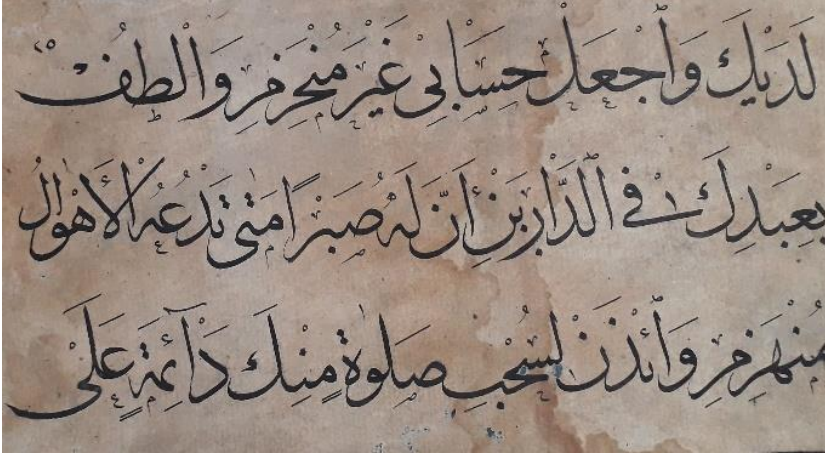 لَدَيْكَ وَاجْعَلْ حِسَابِيْ غَيْرَ مُنْخَرِمٍ وَالْطُفْ
بِعَبْدِكَ فِي الدَّارَيْنِ اِنَّ لَهُ صَبْرًا مَتٰى تَدْعُهُ الْاَهْوَالُ
مُنْهَزِمٍ وَائْذَنْ لِسُحْبِ صَلٰوةٍ مِنْكَ دَآئِمَةٍ عَلَى